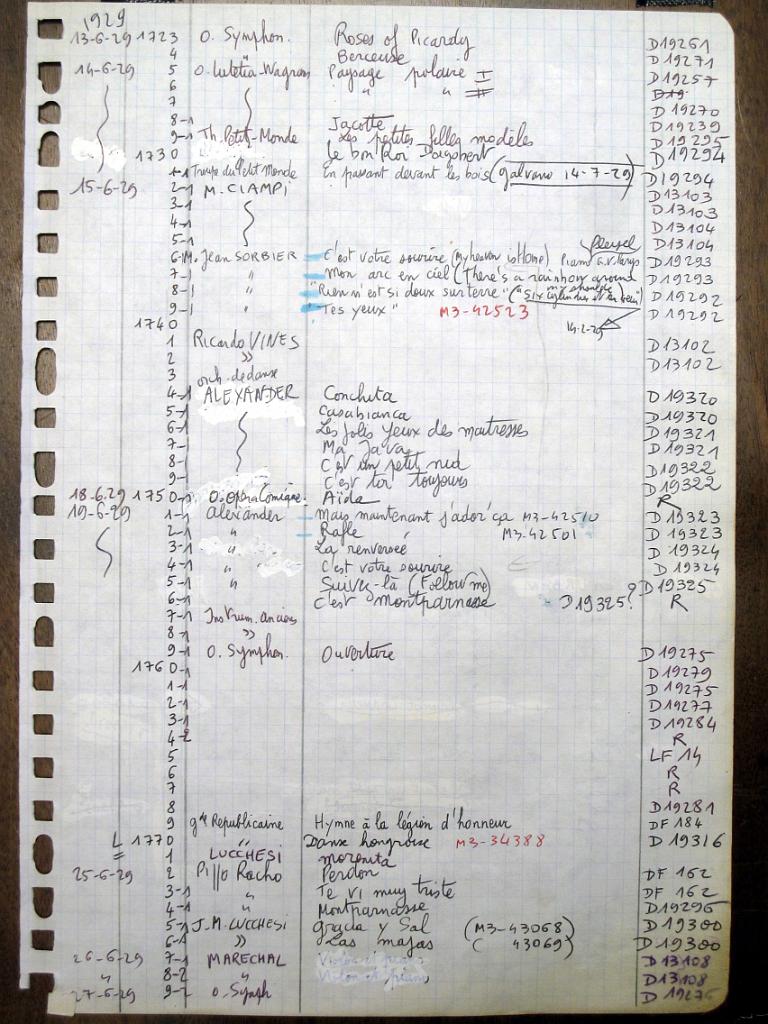 1929
13-6-29 1723 O. Symphon. Roses of Picardy D19261
4 " Berceuse D19271
14-6-29 5 O. Lutetia-Wagram Paysage polaire I D19257
6 " " II D19
7 D19270
8-1 Jacotte D19239
9-1 Th. Petit-Monde Les petites filles modèles D19295
1730 Le bon Roi Dagobert D19294
1-1 Troupe du Petit Monde En passant devant les bois (galvano 14-7-29) D19294
15-6-29 2-1 M. CIAMPI D13103
3-1 D13103
4-1 D13104
5-1 D13104
6-1 M. Jean SORBIER C'est votre sourire (My heaven is Home) Pleyel Piano D19293
7-1 " Mon arc en ciel (There's a rainbow around my shoulder) D19293
8-1 " "Rien n'est si doux sur terre" D19292
9-1 " "Tes yeux" M3-42523 D19292
1740 14-2-29
1 Ricardo VINES D13102
2 " D13102
3 orch. de danse
4-1 ALEXANDER Conchita D19320
5-1 Casabianca D19320
6-1 Les jolis yeux des maitresses D19321
7-1 Ma Java D19321
8-1 C'est un petit nid D19322
9-1 C'est toi toujours D19322
18.6.29 1750-1 O. Opéra Comique. Aïda R
19-6-29 1-1 Alexander Mais maintenant j'ador'ça M3-42510 D19323
2-1 " Rafle M3-42501 D19323
3-1 " La renversée D19324
4-1 " C'est votre sourire D19324
5-1 " Suivez-là (Follow me) D19325
6-1 C'est Montparnasse D19325? R
7-1 Instrum. anciens
8-1 "
9-1 O. Symphon. Ouverture D19275
1760-1 D19279
1-1 D19275
2-1 D19277
3-1 D19284
4-2 R
5 LF 14
6 R
7 R
8 D19281
9 gde Republicaine Hymne à la légion d'honneur DF 184
L 1770 " Danse hongroise M3-34388 D19316
1 LUCCHESI Morenita
25-6-29 2 Pillo Racho Perdon DF 162
3-1 " Te vi muy triste DF 162
4-1 " Montparnasse D19296
5-1 J.M. LUCCHESI Gracia y Sal (M3-43068) D19300
6-1 " Las majas ( 43069) D19300
26-6-29 7-1 MARECHAL Violon et piano D13108
" 8-2 Violon et piano D13108
27-6-29 9-2 O. Symph D19276